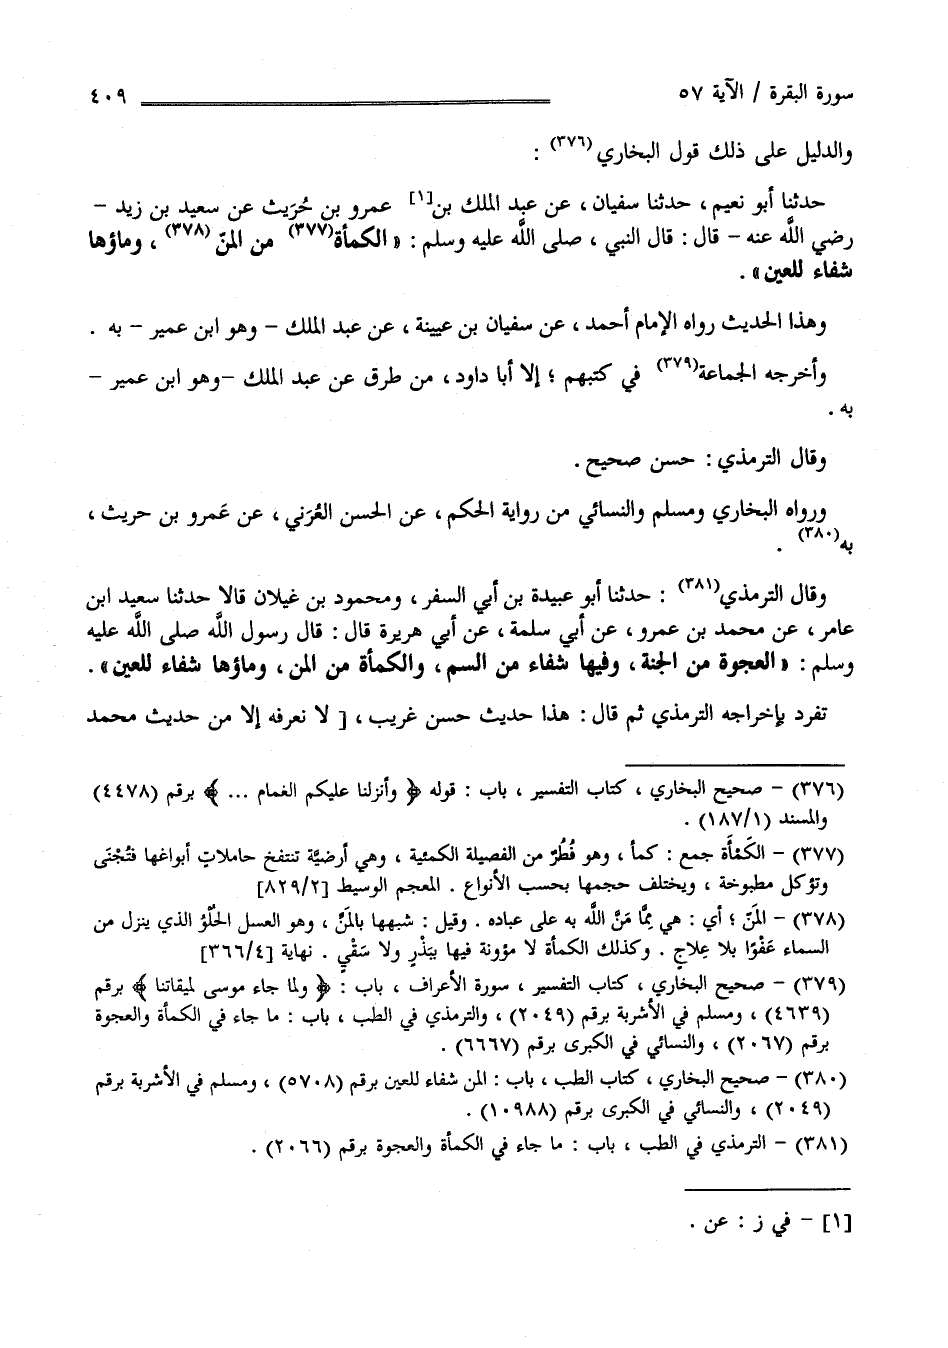 سورة البقرة / الآية ٥٧ ٤٠٩
والدليل على ذلك قول البخاري(٣٧٦) :
حدثنا أبو نعيم ، حدثنا سفيان ، عن عبد الملك بن[١] عمرو بن حُرَيث عن سعيد بن زيد –
رضي اللَّه عنه – قال : قال النبي ، صلى اللَّه عليه وسلم : « الكمأة(٣٧٧) من المنّ(٣٧٨) ، وماؤها
شفاء للعين» .
وهذا الحديث رواه الإمام أحمد ، عن سفيان بن عيينة ، عن عبد الملك – وهو ابن عمير – به .
وأخرجه الجماعة(٣٧٩) في كتبهم ؛ إلا أبا داود ، من طرق عن عبد الملك –وهو ابن عمير –
به .
وقال الترمذي : حسن صحيح .
ورواه البخاري ومسلم والنسائي من رواية الحكم ، عن الحسن العُرَني ، عن عَمرو بن حريث ،
به(٣٨٠) .
وقال الترمذي(٣٨١) : حدثنا أبو عبيدة بن أبي السفر ، ومحمود بن غيلان قالا حدثنا سعيد ابن
عامر ، عن محمد بن عمرو ، عن أبي سلمة ، عن أبي هريرة قال : قال رسول اللَّه صلى اللَّه عليه
وسلم : « العجوة من الجنة ، وفيها شفاء من السم ، والكمأة من المن ، وماؤها شفاء للعين» .
تفرد بإخراجه الترمذي ثم قال : هذا حديث حسن غريب ، [ لا نعرفه إلا من حديث محمد
(٣٧٦) – صحيح البخاري ، كتاب التفسير ، باب : قوله ﴿ وأنزلنا عليكم الغمام ... ﴾ برقم (٤٤٧٨)
والمسند (١٨٧/١) .
(٣٧٧) – الكَمْأَة جمع : كمأ ، وهو فُطُرّ من الفصيلة الكمئية ، وهي أرضيَّة تنتفخ حاملاتِ أبواغها فتُجْنَى
وتؤكل مطبوخة ، ويختلف حجمها بحسب الأنواع . المعجم الوسيط [٨٢٩/٢]
(٣٧٨) – المَنّ ؛ أي : هي مِمَّا مَنَّ اللَّه به على عباده . وقيل : شبهها بالمَنِّ ، وهو العسل الحُلْوُ الذي ينزل من
السماء عَفْوًا بلا عِلاجٍ . وكذلك الكمأة لا مؤونة فيها بِبَذْرٍ ولا سَقْيٍ . نهاية [٣٦٦/٤]
(٣٧٩) – صحيح البخاري ، كتاب التفسير ، سورة الأعراف ، باب : ﴿ ولما جاء موسى لميقاتنا ﴾ برقم
(٤٦٣٩) ، ومسلم في الأشربة برقم (٢٠٤٩) ، والترمذي في الطب ، باب : ما جاء في الكمأة والعجوة
برقم (٢٠٦٧) ، والنسائي في الكبرى برقم (٦٦٦٧) .
(٣٨٠) – صحيح البخاري ، كتاب الطب ، باب : المن شفاء للعين برقم (٥٧٠٨) ، ومسلم في الأشربة برقم
(٢٠٤٩) ، والنسائي في الكبرى برقم (١٠٩٨٨) .
(٣٨١) – الترمذي في الطب ، باب : ما جاء في الكمأة والعجوة برقم (٢٠٦٦) .
[١] – في ز : عن .